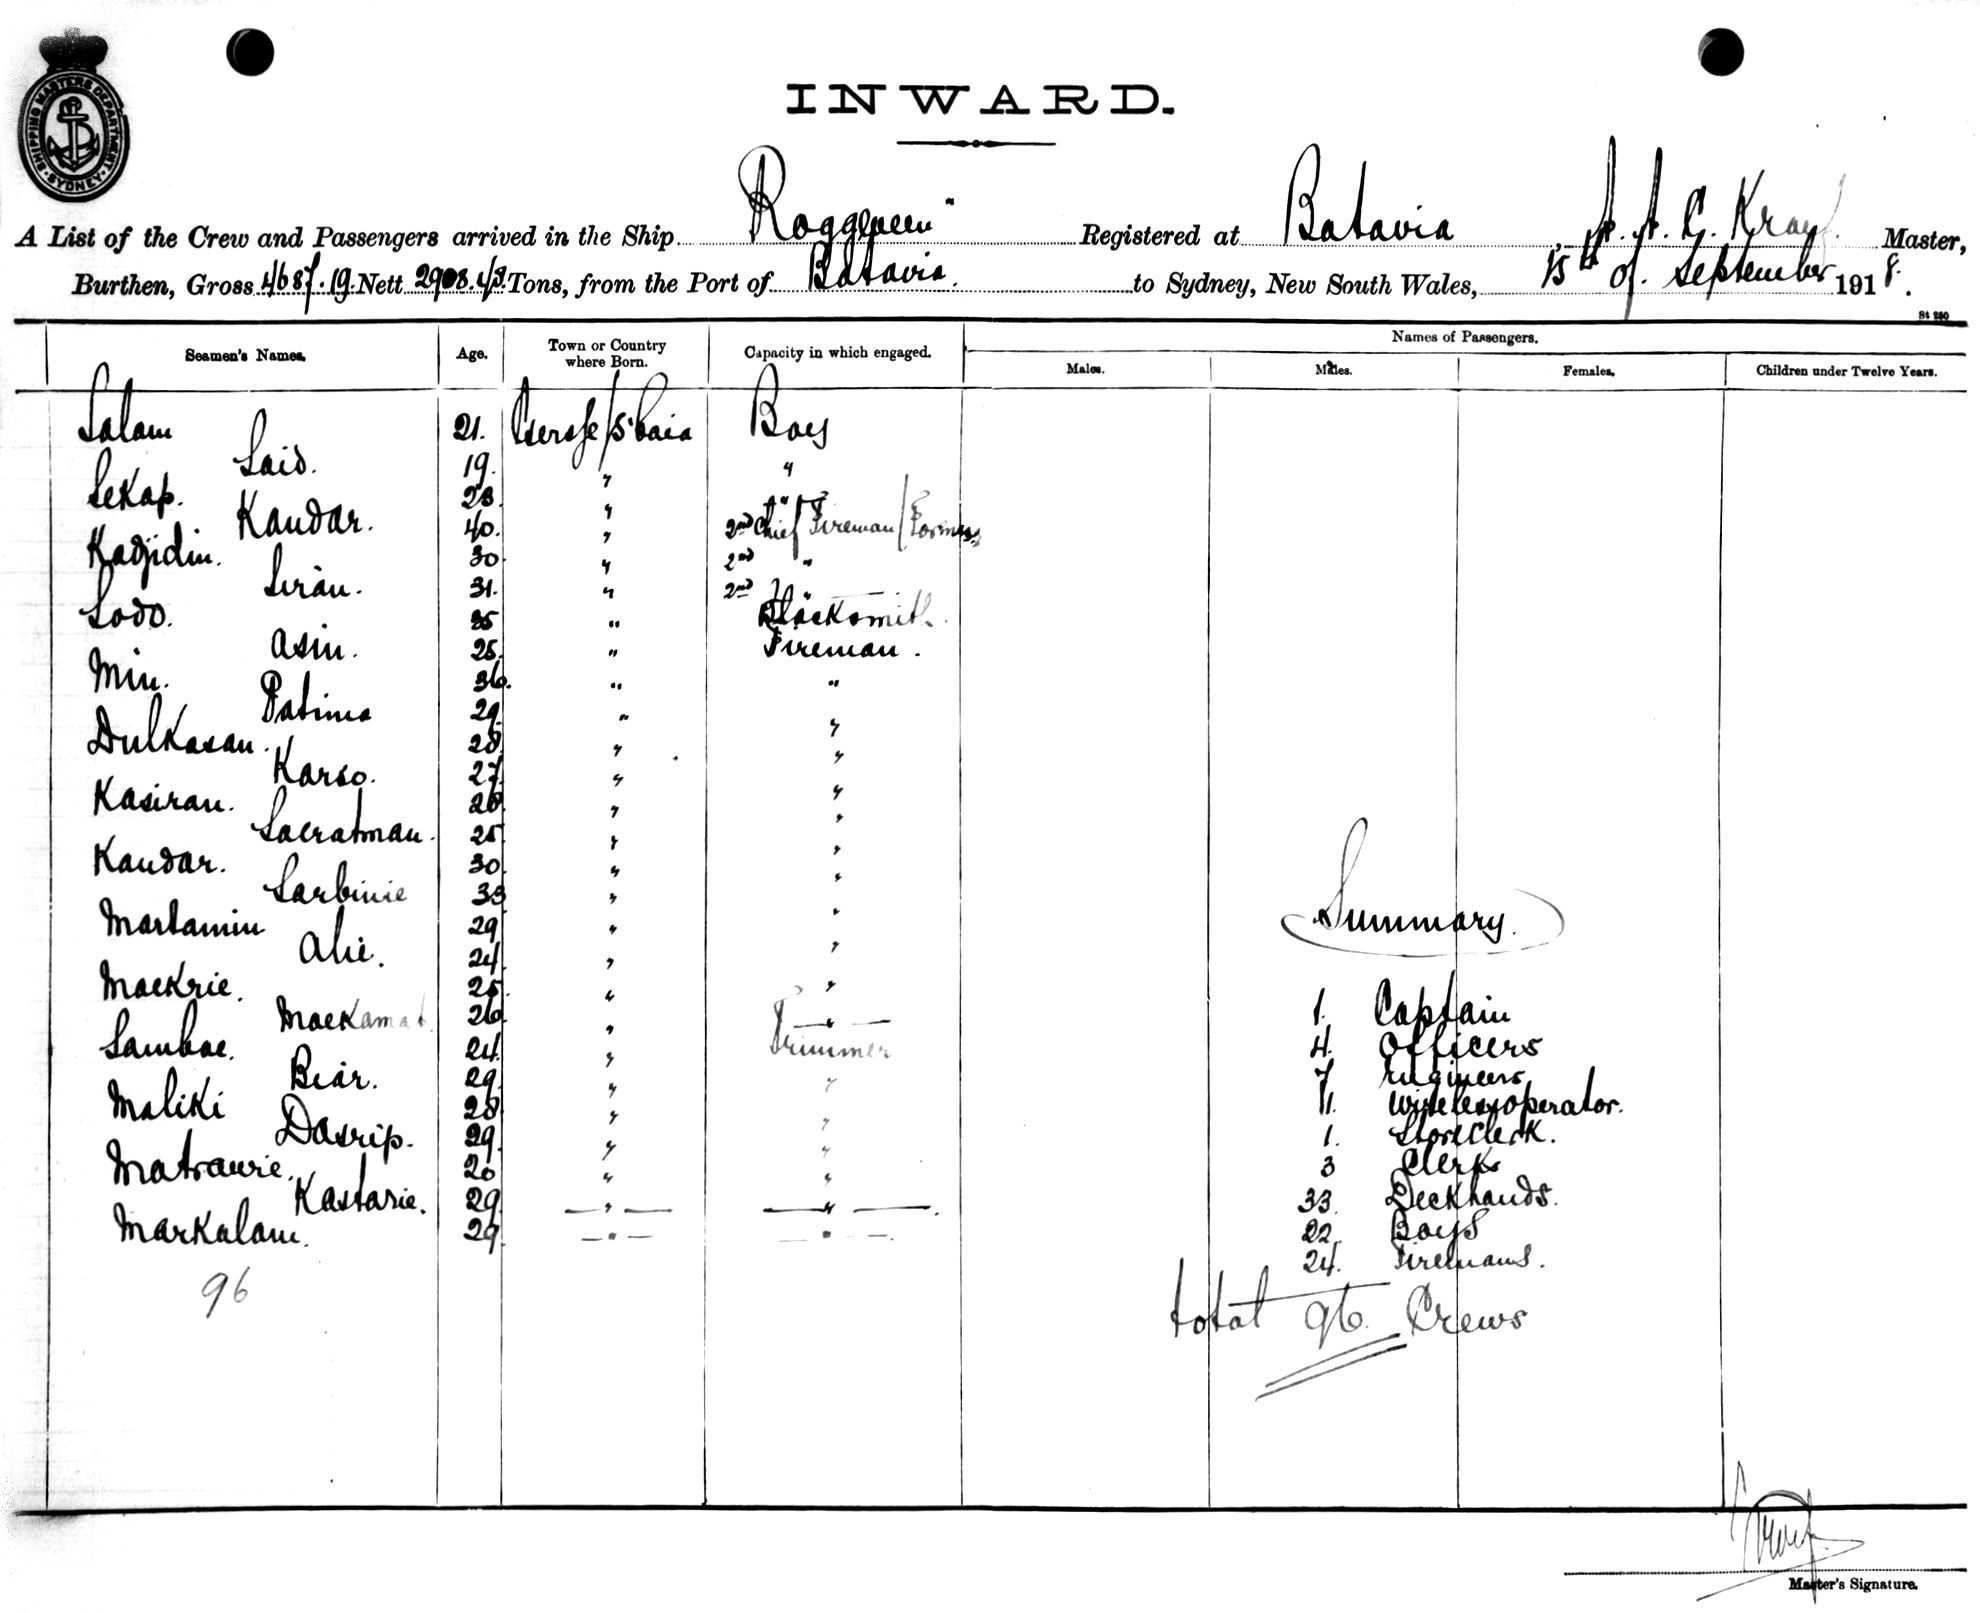 SHIPPING MASTERS DEPARTMENT · SYDNEY ·
INWARD.
A List of the Crew and Passengers arrived in the Ship Roggeveen" Registered at Batavia, A. A. C. Master,
Burthen, Gross 4687.19. Nett 2908.43. Tons, from the Port of Batavia. to Sydney, New South Wales, 15th of September 1918.
St 250
Seamen's Names. Age. Town or Country where Born. Capacity in which engaged. Names of Passengers.
Males. Males. Females. Children under Twelve Years.
Salam 21. /S'baia Boy
Said. 19. " "
Sekap. 28 " "
Kandar. 40. " 2nd Chief Fireman /
Kadjidin. 30. " 2nd "
Siran. 31. " 2nd "
Sodo. 35 " Blacksmith.
Asin. 25. " Fireman.
Min. 36. " "
Patima 29. " "
Dulkasan. 28 " "
Karso. 27 " "
Kasiran. 28 " "
Saeratman. 25 " "
Kandar. 30. " "
Sarbinie 33 " "
Martamin 29 " "
Alie. 24 " "
Maekrie. 25 " "
Maekamat. 26 " "
Sambae. 24. " Trimmer
Biar. 29 " "
Maliki 28 " "
Dasrip. 29 " "
Matrawie. 20 " "
Kastarie. 29 " "
Markalam. 29 " "
96
Summary.
1. Captain
4. Officers
7 Engineers
1. Wirelessoperator.
1. Storeclerk.
3 Clerks
33. Deckhands.
22. Boys
24. Firemans.
total 96. Crews
Master's Signature.